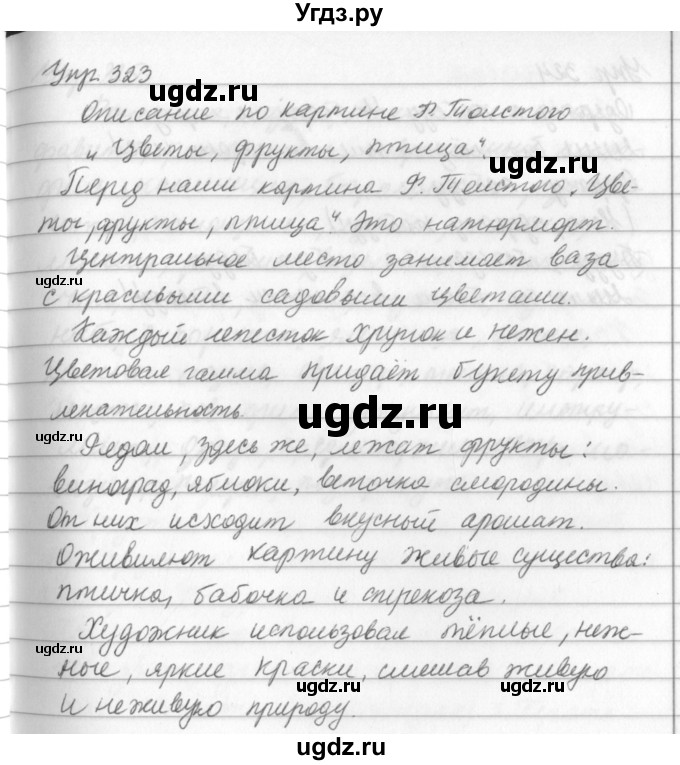 Угдз.ру
Упр. 323
ugdz.ru
Описание по картине Ф. Толстого
„Цветы, фрукты, птица“.
ugdz.ru
Перед нами картина Ф. Толстого „Цве-
ты, фрукты, птица“. Это натюрморт.
Центральное место занимает ваза
ugdz.ru
с красивыми садовыми цветами.
Каждый лепесток хрупок и нежен.
Цветовая гамма придаёт букету прив-
лекательность.
ugdz.ru
ugdz.ru
Рядом, здесь же, лежат фрукты:
виноград, яблоки, веточка смородины.
От них исходит вкусный аромат.
Оживляют картину живые существа:
птичка, бабочка и стрекоза.
Художник использовал тёплые, неж-
ugdz.ru
ные, яркие краски, смешав живую
ugdz.ru
ugdz.ru
и неживую природу.
ugdz.ru